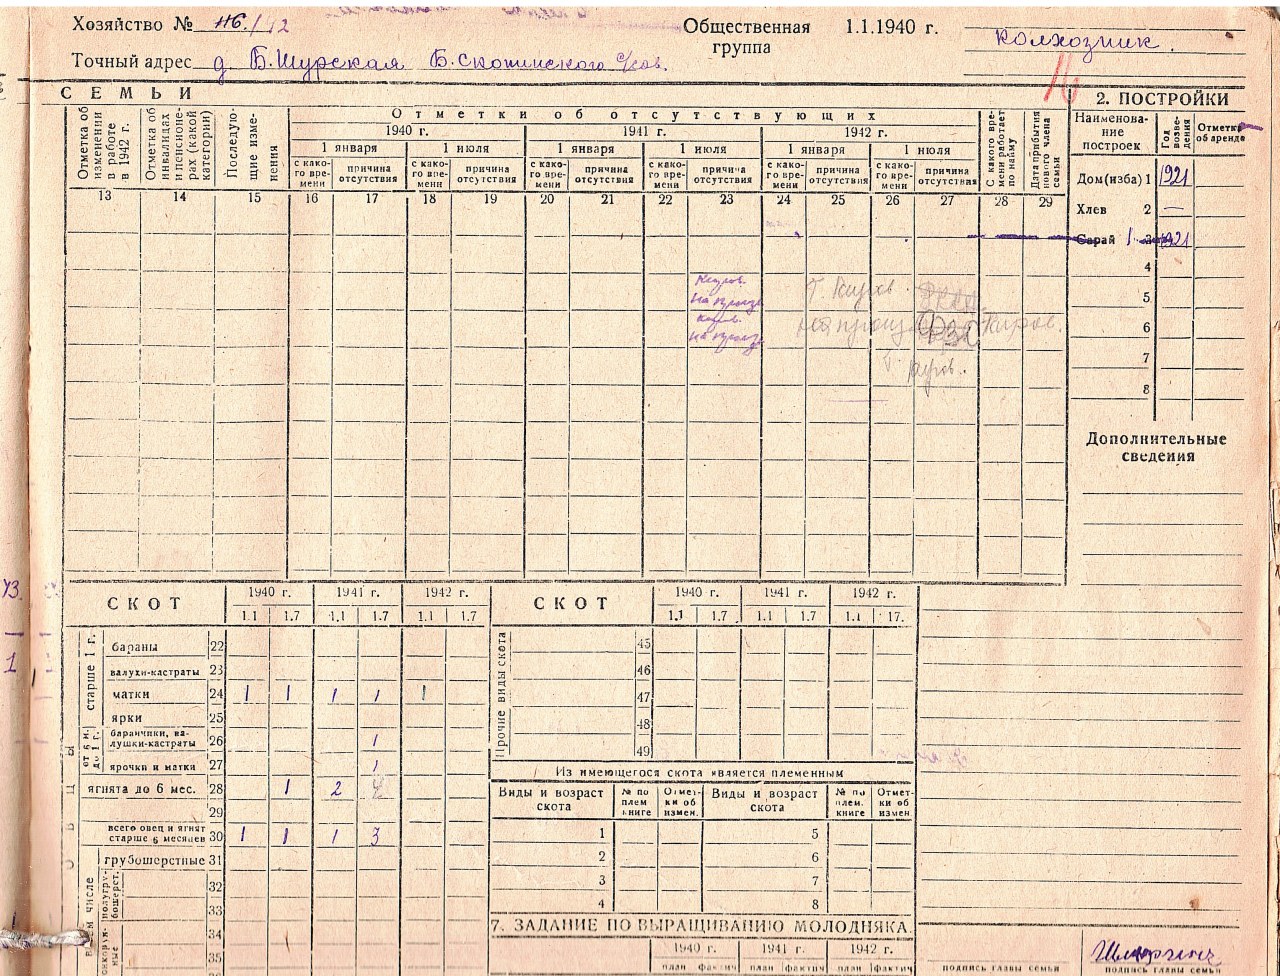 Хозяйство № 116/92 Общественная группа 1.1.1940 г. колхозник.
Точный адрес д. Б.Шурская Б.Скопинского с/сов.
СЕМЬИ
Отметка об изменении в работе в 1942 г.
Отметка об инвалидах и пенсионерах (какой категории)
Последующие изменения
Отметки об отсутствующих
1940 г. 1941 г. 1942 г.
1 января 1 июля 1 января 1 июля 1 января 1 июля
с какого времени причина отсутствия с какого времени причина отсутствия с какого времени причина отсутствия с какого времени причина отсутствия с какого времени причина отсутствия с какого времени причина отсутствия
С какого времени работает по найму
Дата прибытия нового члена семьи
13 14 15 16 17 18 19 20 21 22 23 24 25 26 27 28 29
Киров.
на произ
Киров.
на произ
г. Киров.
на произ ФЗО Киров.
г. Киров.
2. ПОСТРОЙКИ
Наименование построек Год возведения Отметка об аренде
Дом(изба) 1 1921
Хлев 2 —
Сарай 1 3 1921
4
5
6
7
8
Дополнительные сведения
СКОТ 1940 г. 1941 г. 1942 г.
1.1 1.7 1.1 1.7 1.1 1.7
старше 1 г.
бараны 22
валухи-кастраты 23
матки 24 1 1 1 1 1
ярки 25
от 6 м. до 1 г.
баранчики, валушки-кастраты 26 1
ярочки и матки 27 1
ягнята до 6 мес. 28 1 2
29
всего овец и ягнят старше 6 месяцев 30 1 1 1 3
грубошерстные 31
32
33
34
35
СКОТ 1940 г. 1941 г. 1942 г.
1.1 1.7 1.1 1.7 1.1 1.7.
Прочие виды скота
45
46
47
48
49
Из имеющегося скота является племенным
Виды и возраст скота № по плем книге Отметки об измен. Виды и возраст скота № по плем. книге Отметки об измен
1 5
2 6
3 7
4 8
7. ЗАДАНИЕ ПО ВЫРАЩИВАНИЮ МОЛОДНЯКА.
1940 г. 1941 г. 1942 г.
план фактич план фактич план фактич
подпись главы семьи подпись главы семьи